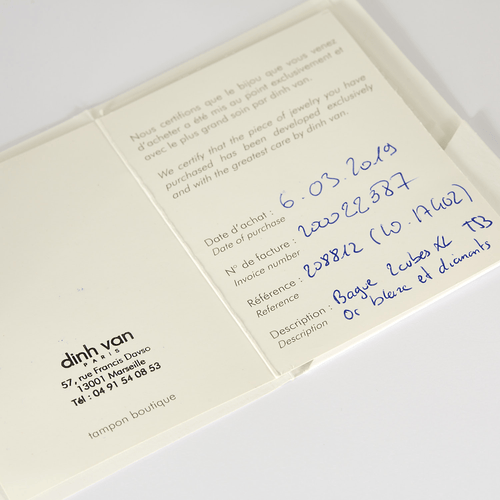 Nous certifions que le bijou que vous venez
d'acheter a été mis au point exclusivement et
avec le plus grand soin par dinh van.
We certify that the piece of jewelry you have
purchased has been developed exclusively
and with the greatest care by dinh van.
Date d'achat : 6.03.2019
Date of purchase
N° de facture : 200022387
Invoice number
Référence : 208812 (LO.17402)
Reference
Description : Bague 2cubes XL TB
Description
Or blanc et diamants
dinh van
PARIS
57, rue Francis Davso
13001 Marseille
Tél : 04 91 54 08 53
tampon boutique